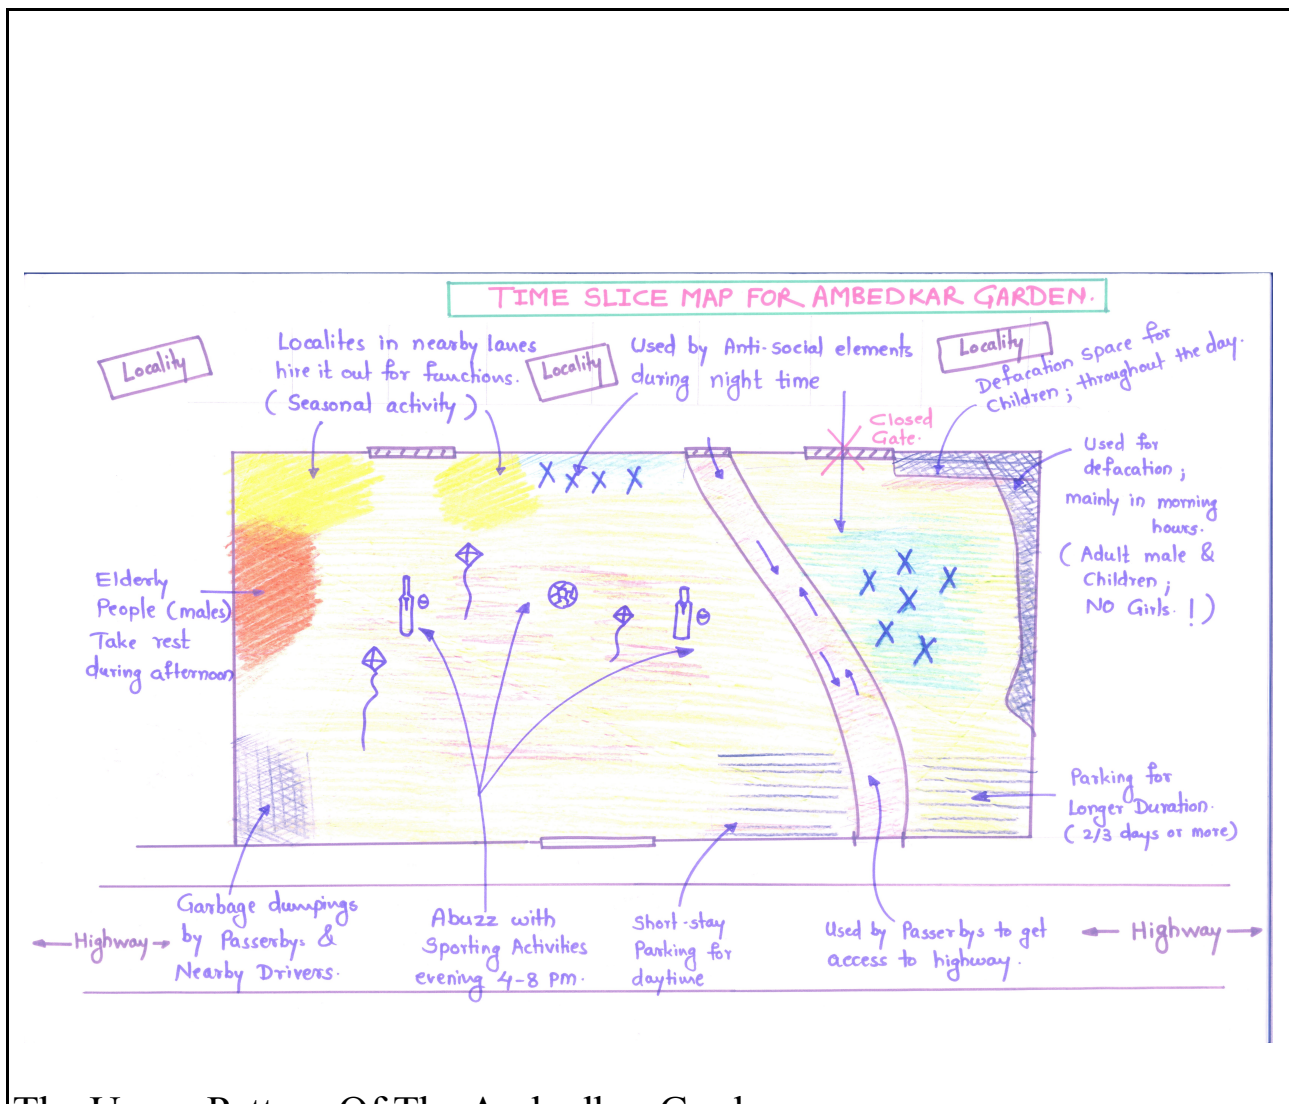 TIME SLICE MAP FOR AMBEDKAR GARDEN.
Locality
Localites in nearby lanes
hire it out for functions.
( Seasonal activity )
Locality
Used by Anti-social elements
during night time
Locality
Defacation space for
Children; throughout the day.
Closed
Gate.
Used for
defacation ;
mainly in morning
hours.
( Adult male &
Children ;
No Girls. ! )
Elderly
People (males)
Take rest
during afternoon
Parking for
Longer Duration.
( 2/3 days or more)
Highway
Garbage dumpings
by Passerbys &
Nearby Drivers.
Abuzz with
Sporting Activities
evening 4-8 pm.
Short-stay
Parking for
daytime
Used by Passerbys to get
access to highway.
Highway